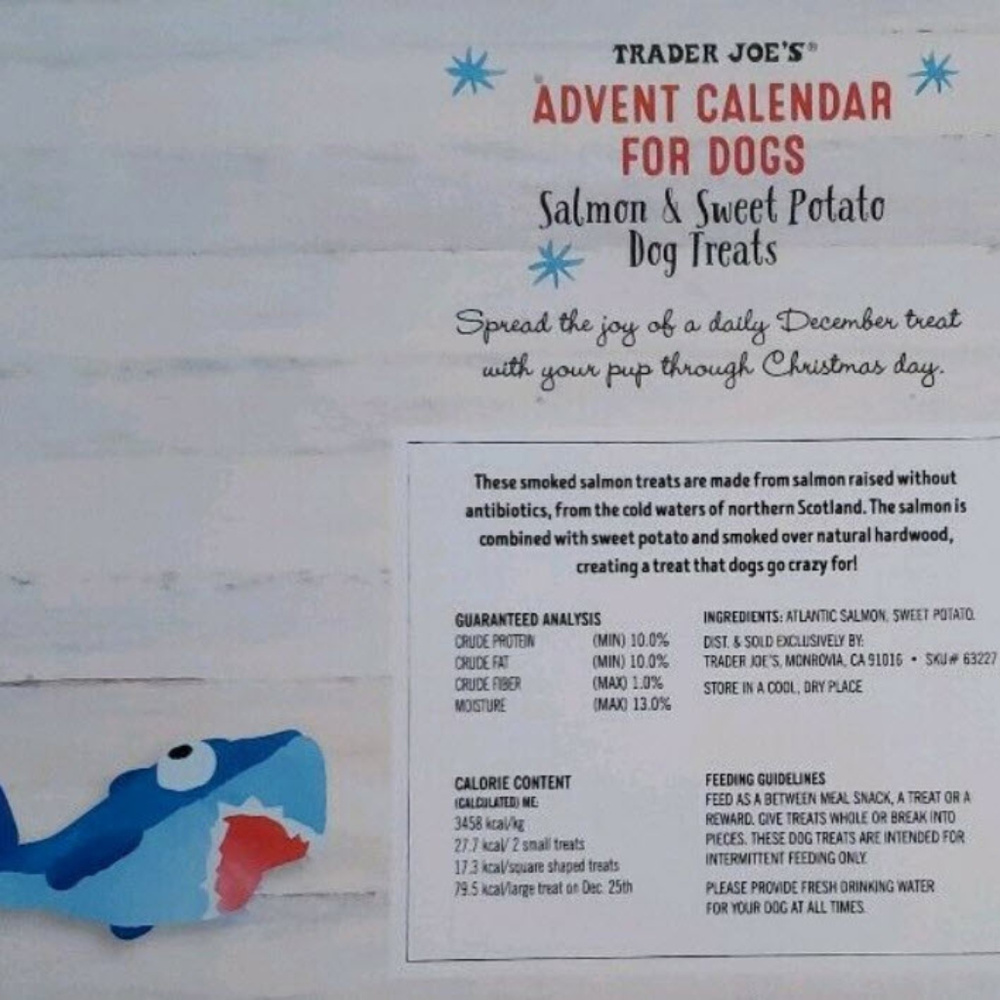 TRADER JOE'S®
ADVENT CALENDAR
FOR DOGS
Salmon & Sweet Potato
Dog Treats
Spread the joy of a daily December treat
with your pup through Christmas day.
These smoked salmon treats are made from salmon raised without
antibiotics, from the cold waters of northern Scotland. The salmon is
combined with sweet potato and smoked over natural hardwood,
creating a treat that dogs go crazy for!
GUARANTEED ANALYSIS
CRUDE PROTEIN (MIN) 10.0%
CRUDE FAT (MIN) 10.0%
CRUDE FIBER (MAX) 1.0%
MOISTURE (MAX) 13.0%
INGREDIENTS: ATLANTIC SALMON, SWEET POTATO.
DIST. & SOLD EXCLUSIVELY BY:
TRADER JOE'S, MONROVIA, CA 91016 • SKU# 63227
STORE IN A COOL, DRY PLACE
CALORIE CONTENT
(CALCULATED) ME:
3458 kcal/kg
27.7 kcal/ 2 small treats
17.3 kcal/square shaped treats
79.5 kcal/large treat on Dec. 25th
FEEDING GUIDELINES
FEED AS A BETWEEN MEAL SNACK, A TREAT OR A
REWARD. GIVE TREATS WHOLE OR BREAK INTO
PIECES. THESE DOG TREATS ARE INTENDED FOR
INTERMITTENT FEEDING ONLY.
PLEASE PROVIDE FRESH DRINKING WATER
FOR YOUR DOG AT ALL TIMES.